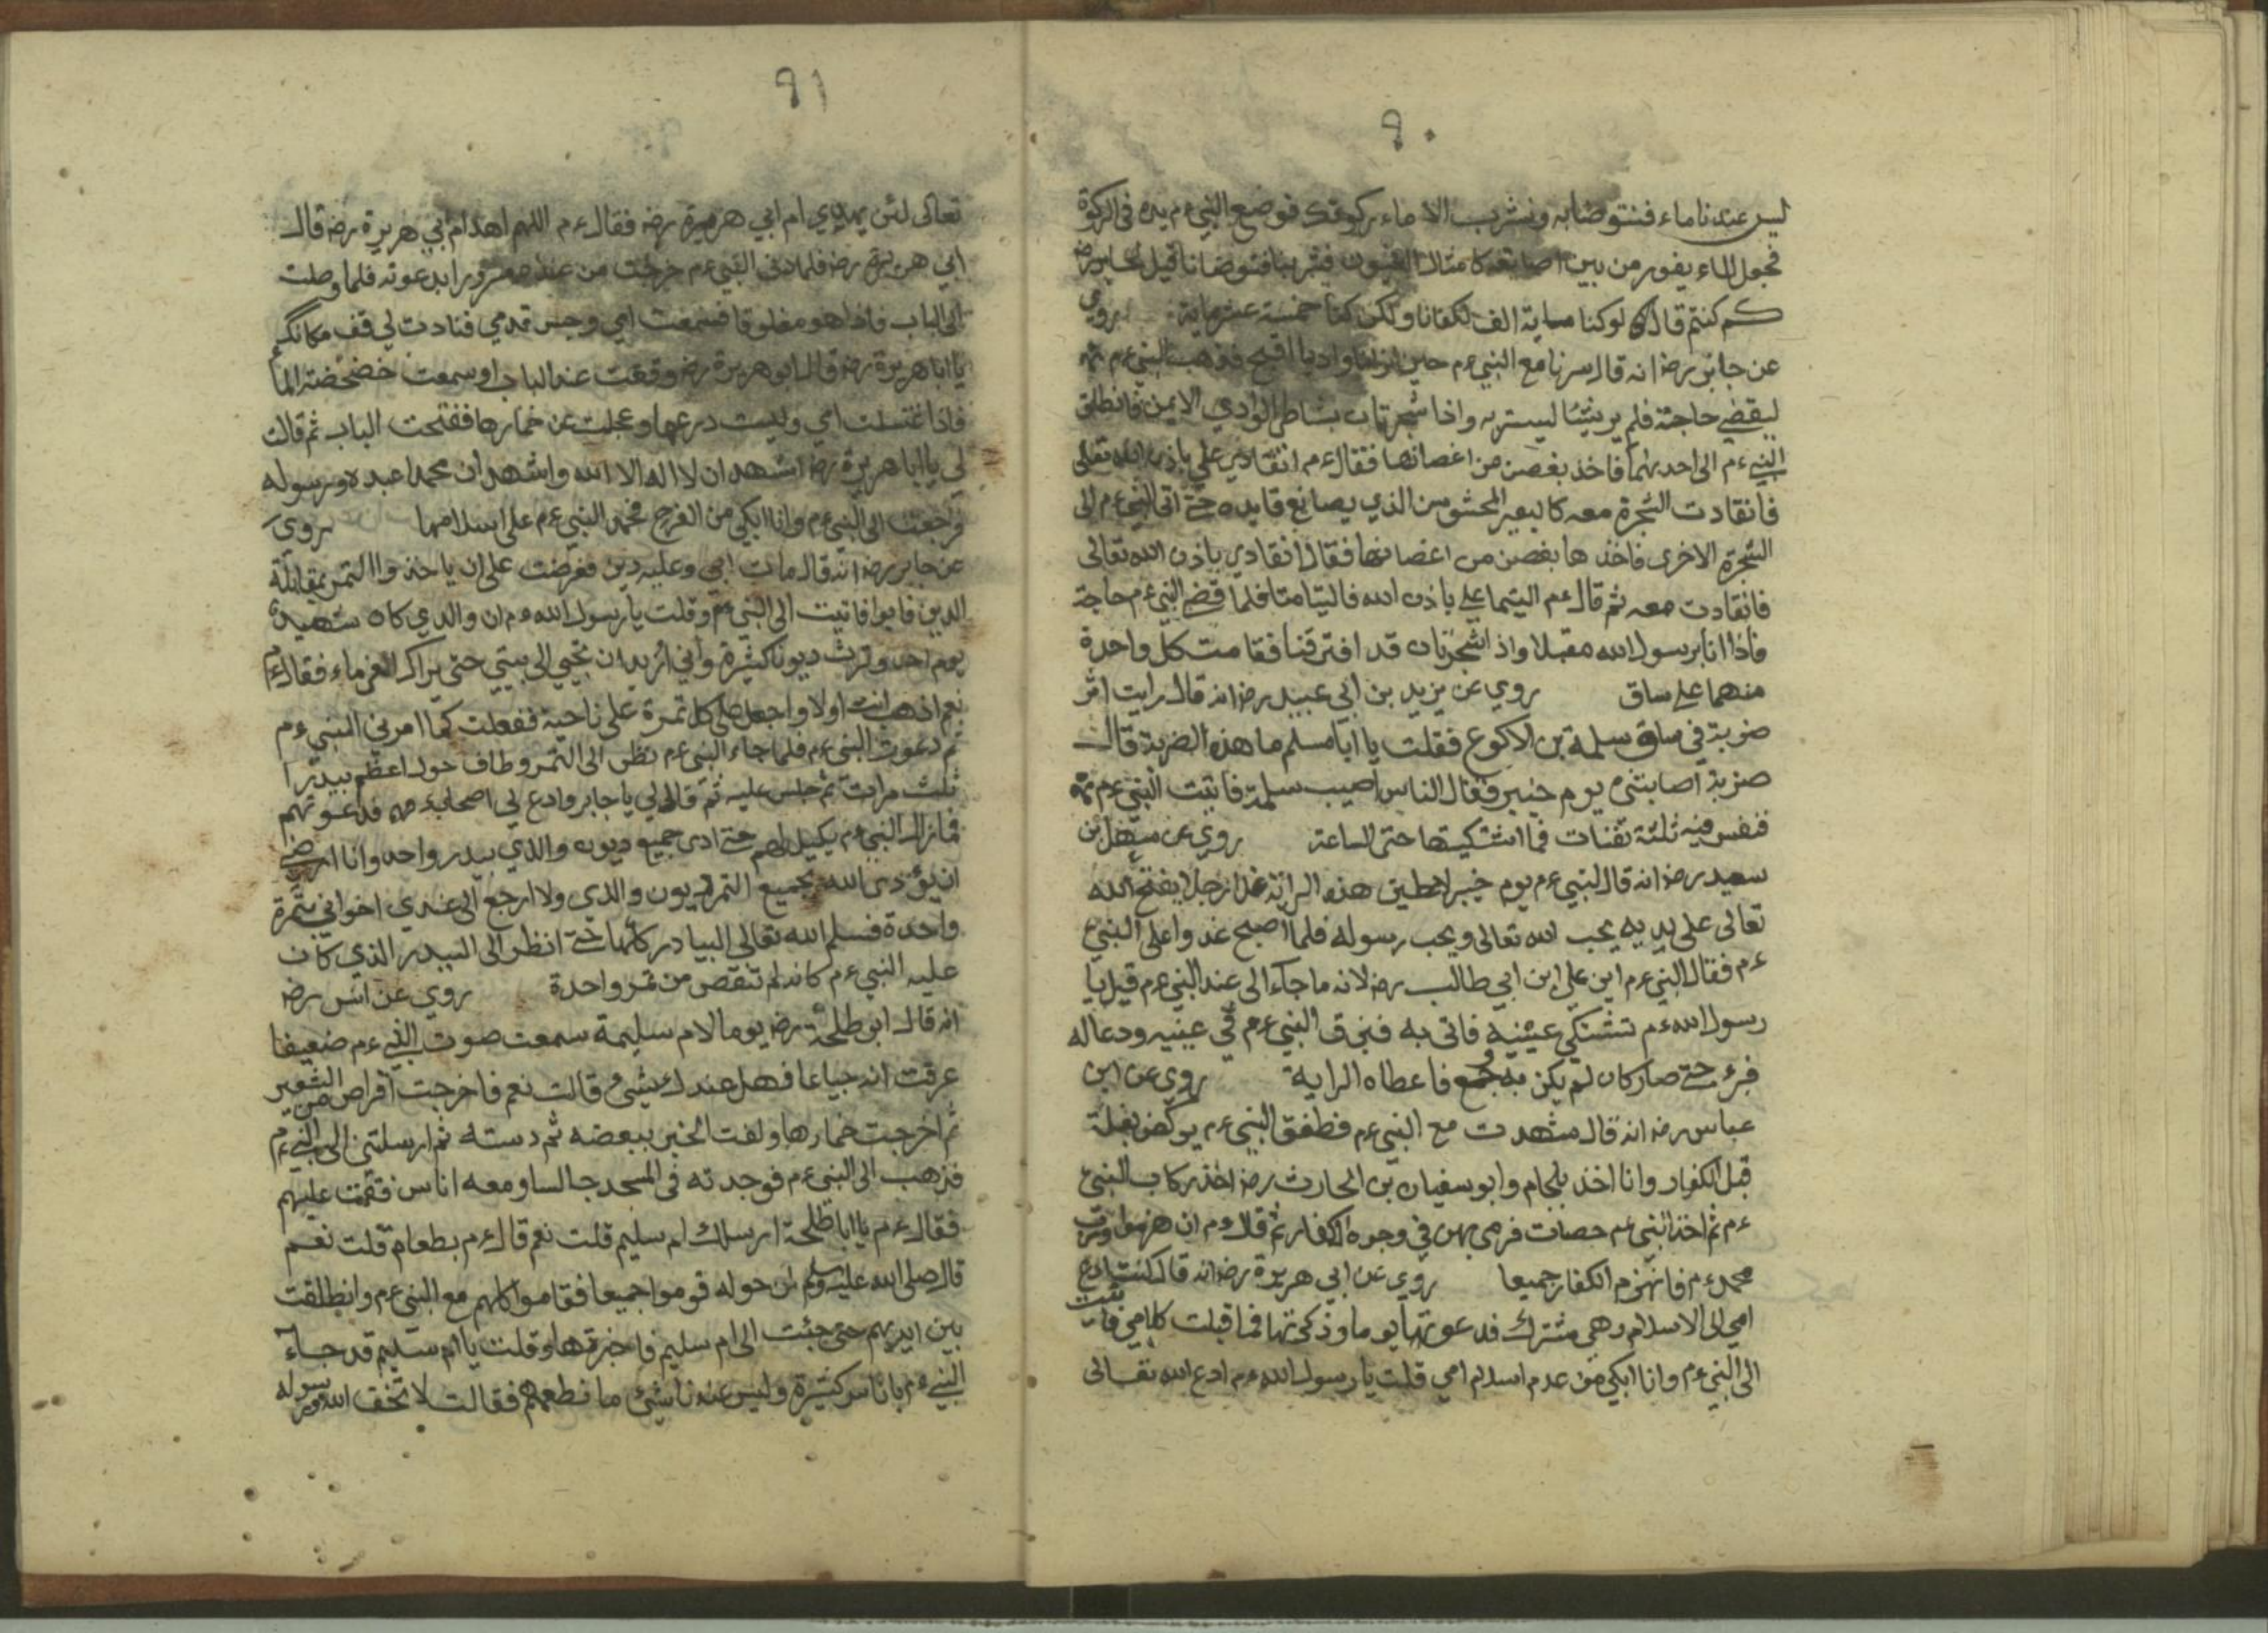 ٩٠
ليس عندنا ماء فنتوضا به ونشرب الا ماء ركوتك فوضع النبي ءم يده في الركوة
فجعل الماء يفور من بين اصابعه كامثال العيون فشربنا فتوضانا قيل لجابر رضه
كم كنتم قال لو كنا مماية الف لكفانا ولكن كنا خمسة عشر ماية روي
عن جابر رضه انه قال سرنا مع النبي ءم حين نزلنا واديا افيح فذهب النبي ءم
ليقضي حاجته فلم ير شيئا ليستر به واذا شجرتان بشاطئ الوادي الايمن فانطلق
النبي ءم الى احديهما فاخذ بغصن من اغصانها فقال ءم انقادي علي باذن الله تعالى
فانقادت الشجرة معه كالبعير المحشوش الذي يصانع قايده حتى اتى النبي ءم الى
الشجرة الاخرى فاخذها بغصن من اغصانها فقال انقادي باذن الله تعالى
فانقادت معه ثم قال ءم التيما علي باذن الله فالتيامتا فلما قضى النبي ءم حاجته
فاذا انا برسول الله مقبلا واذ الشجرتان قد افترقتا فقامت كل واحدة
منهما على ساق روي عن يزيد بن ابي عبيد رضه انه قال رايت اثر
ضربة في ساق سلمة بن الاكوع فقلت يا ابا مسلم ما هذه الضربة قال
ضربة اصابتني يوم خيبر فقال الناس اصيب سلمة فاتيت النبي ءم
فنفس فيه ثلثة نفثات فما اشتكيتها حتى الساعة روي عن سهل بن
سعيد رضه انه قال النبي ءم يوم خيبر لاعطين هذه الراية غدا رجلا يفتح الله
تعالى على يديه يحب الله تعالى ويحب رسوله فلما اصبح غدوا على النبي
ءم فقال النبي ءم اين علي ابن ابي طالب رضه لانه ما جاء الى عند النبي ءم قيل يا
رسول الله ءم تشتكي عينيه فاتى به فبزق النبي ءم في عينيه ودعا له
فبرء حتى صار كان لم يكن به وجع فاعطاه الراية روي عن ابن
عباس رضه انه قال شهدت مع النبي ءم فطفق النبي ءم يركض بغلة
قبل الكفار وانا اخذ بلجام وابو سفيان بن الحارث رضه اخذ ركاب النبي
ءم ثم اخذ النبي ءم حصات فرمى بهن في وجوه الكفار ثم قال ءم انهزموا ورب
محمد ءم فانهزم الكفار جميعا روي عن ابي هريرة رضه انه قال كنت ادع
امي الى الاسلام وهي مشرك فدعوتها يوما وذكرتها فما قبلت كلامي فاتيت
الى النبي ءم وانا ابكي من عدم اسلام امي قلت يا رسول الله ءم ادع الله تعالى
٩١
تعالى لئن يهدي ام ابي هريرة رضه فقال ءم اللهم اهد ام ابي هريرة رضه قال
ابي هريرة رضه فلما دنى النبي ءم خرجت من عنده مسرورا بدعوته فلما وصلت
الى الباب فاذا هو مغلوقا فسمعت امي وحس قدمي فنادت لي قف مكانك
يا ابا هريرة رضه قال ابو هريرة رضه وقفت عند الباب وسمعت خضخضة الماء
فاذا غتسلت امي ولبست درعها وعجلت عن خمارها ففتحت الباب ثم قالت
لي يا ابا هريرة رضه اشهد ان لا اله الا الله واشهد ان محمدا عبده ورسوله
فرجعت الى النبي ءم وانا ابكي من الفرح فحمد النبي ءم على اسلامها روى
عن جابر رضه انه قال مات ابي وعليه دين فعرضت على ان ياخذوا التمر بمقابلة
الدين فابوا فاتيت الى النبي ءم وقلت يا رسول الله ءم ان والدي كان شهيدا
يوم احد وترك ديونا كثيرة واني اريد ان تجي الى بيتي حتى يراك الغرماء فقال ءم
نعم اذهب انت اولا واجعل كل تمرة على ناحية ففعلت كما امرني النبي ءم
ثم دعوت النبي ءم فلما جاء النبي ءم نظر الى التمر وطاف حول اعظم بيدرا
ثلث مرات ثم جلس عليه ثم قال لي يا جابر وادع لي اصحابك فدعوتهم
فما زال النبي ءم يكيل لهم حتى ادى جميع ديون والدي بيدر واحد وانا ارضى
ان يؤدى الله بجميع التمر ديون والدي ولا ارجع الى عندي اخواني بتمرة
واحدة فسلم الله تعالى البيادر كلها حتى انظر الى البيدر الذي كان
عليه النبي ءم كانه لم تنقص من تمر واحدة روي عن انس رضه
انه قال ابو طلحة رضه يوما لام سليمة سمعت صوت النبي ءم ضعيفا
عرفت انه جياعا فهل عندك شيئ قالت نعم فاخرجت اقراص من الشعير
ثم اخرجت خمارها ولفت الخبز ببعضه ثم دسته ثم ارسلتني الى النبي ءم
فذهب الى النبي ءم فوجدته في المسجد جالسا ومعه اناس فقمت عليهم
فقال ءم يا ابا طلحة ارسلك ام سليم قلت نعم قال ءم بطعام قلت نعم
قال صلى الله عليه وسلم لمن حوله قوموا جميعا فقاموا كلهم مع النبي ءم وانطلقت
بين ايديهم حتى جئت الى ام سليم فاخبرتها وقلت يا ام سليم قد جاء
النبي ءم باناس كثيرة وليس عندنا شيئ ما نطعمهم فقالت لا تخف الله ورسوله